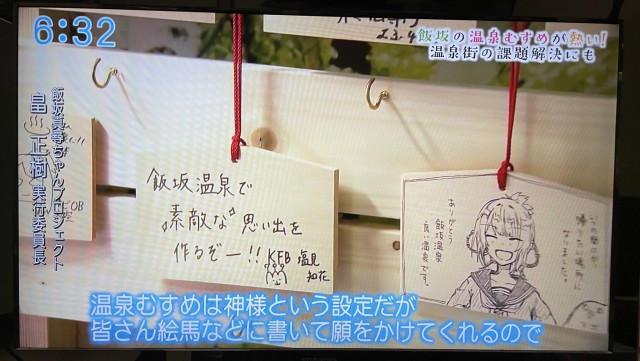 6:32
飯坂の温泉むすめが熱い!
温泉街の課題解決にも
飯坂真尋ちゃんプロジェクト
畠 正樹 実行委員長
飯坂温泉で
素敵な 思い出を
作るぞー!!
KFB 塩見
知花
ありがとう
飯坂温泉
良い温泉です。
帰りたい場所に
なりました。
温泉むすめは神様という設定だが
皆さん絵馬などに書いて願をかけてくれるので